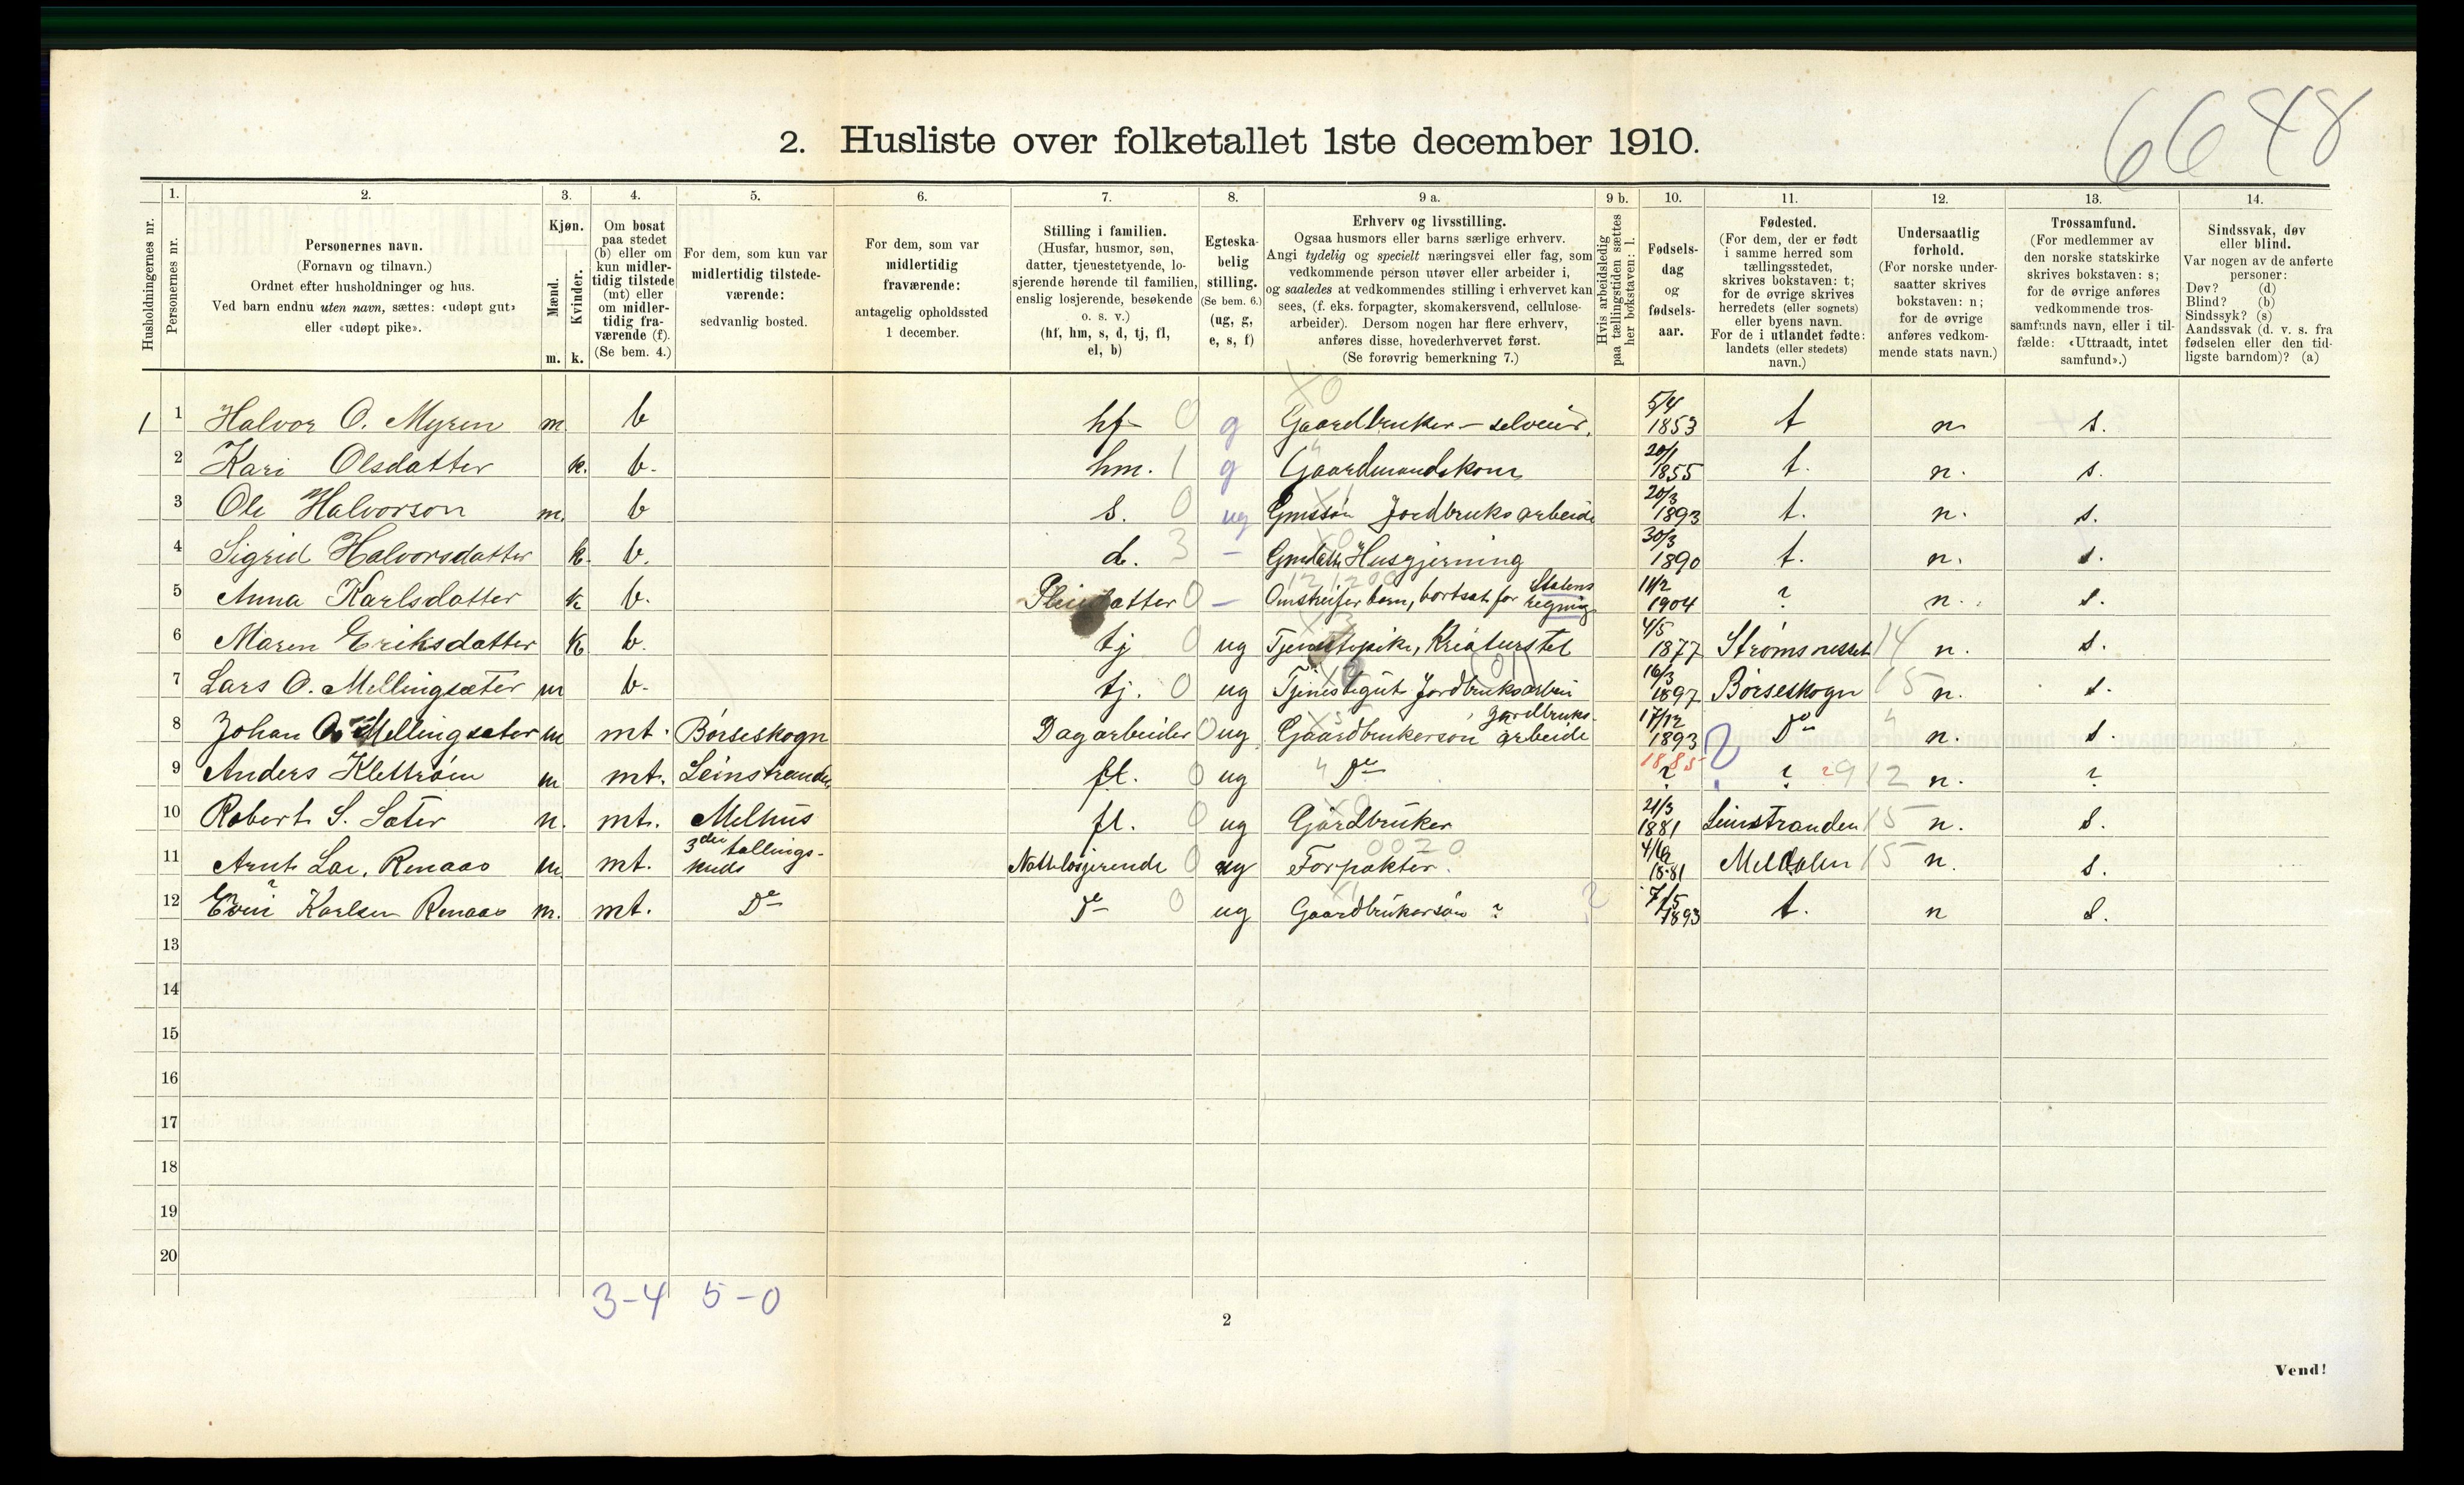 6648
2. Husliste over folketallet 1ste december 1910.
Husholdningernes nr.
1. Personernes nr.
2. Personernes navn. (Fornavn og tilnavn.) Ordnet efter husholdninger og hus. Ved barn endnu uten navn, sættes: «udøpt gut» eller «udøpt pike».
3. Kjøn. Mænd. m. Kvinder. k.
4. Om bosat paa stedet (b) eller om kun midlertidig tilstede (mt) eller om midlertidig fraværende (f). (Se bem. 4.)
5. For dem, som kun var midlertidig tilstedeværende: sedvanlig bosted.
6. For dem, som var midlertidig fraværende: antagelig opholdssted 1 december.
7. Stilling i familien. (Husfar, husmor, søn, datter, tjenestetyende, losjerende hørende til familien, enslig losjerende, besøkende o. s. v.) (hf, hm, s, d, tj, fl, el, b)
8. Egteskabelig stilling. (Se bem. 6.) (ug, g, e, s, f)
9 a. Erhverv og livsstilling. Ogsaa husmors eller barns særlige erhverv. Angi tydelig og specielt næringsvei eller fag, som vedkommende person utøver eller arbeider i, og saaledes at vedkommendes stilling i erhvervet kan sees, (f. eks. forpagter, skomakersvend, cellulosearbeider). Dersom nogen har flere erhverv, anføres disse, hovederhvervet først. (Se forøvrig bemerkning 7.)
9 b. Hvis arbeidsledig paa tællingstiden sættes her bokstaven: l.
10. Fødselsdag og fødselsaar.
11. Fødested. (For dem, der er født i samme herred som tællingsstedet, skrives bokstaven: t; for de øvrige skrives herredets (eller sognets) eller byens navn. For de i utlandet fødte: landets (eller stedets) navn.)
12. Undersaatlig forhold. (For norske undersaatter skrives bokstaven: n; for de øvrige anføres vedkommende stats navn.)
13. Trossamfund. (For medlemmer av den norske statskirke skrives bokstaven: s; for de øvrige anføres vedkommende trossamfunds navn, eller i tilfælde: «Uttraadt, intet samfund».)
14. Sindssvak, døv eller blind. Var nogen av de anførte personer: Døv? (d) Blind? (b) Sindssyk? (s) Aandssvak (d. v. s. fra fødselen eller den tidligste barndom)? (a)
1 1 Halvor O. Myren m. b hf 0 g Gaardbruker - selveier. 5/4 1853 t n s.
2 Kari Olsdatter k. b. hm. 1 g Gaardmandskone 20/1 1855 t. n. s.
3 Ole Halvorson m. b s. 0 ug Gmssøn Jordbruksarbeide 20/3 1893 t. n. s.
4 Sigrid Halvorsdatter k. b. d. 3 - Gmdatter Husgjerning 30/3 1890 t. n. s.
5 Anna Karlsdatter k b. Pleiedatter 0 - Omstreifer barn, bortsat for Statens regning 11/2 1904 ? n. s.
6 Maren Eriksdatter k b. tj 0 ug Tjenestepike, Kreaturstel 4/5 1877 Strømsnesset 14 n. s.
7 Lars O. Mellingsæter m b. tj. 0 ug Tjenestegut Jordbruksarbeide 16/3 1897 Børseskogn 15 n. s.
8 Johan O. Mellingsæter m mt. Børseskogn Dagarbeider 0 ug. Gaardbrukerson Jordbruks-arbeide 17/12 1893 Do n. s.
9 Anders Klettrøm m mt. Leinstranden fl. 0 ug Do 1885 ? ? n. ?
10 Robert S. Sæter m. mt. Melhus fl. 0 ug Gardbruker 21/3 1881 Leinstranden 15 n. s.
11 Arnt Lar. Renaas m. mt. 3die tællingskreds Nattlosjerende 0 ug Forpakter. 1881 Meldalen 15 n. s.
12 Karlsen Renaas m. mt. Do Do 0 ug Gaardbrukersøn ? 7/5 1893 t. n s.
13
14
15
16
17
18
19
20
3-4 5-0
2
Vend!